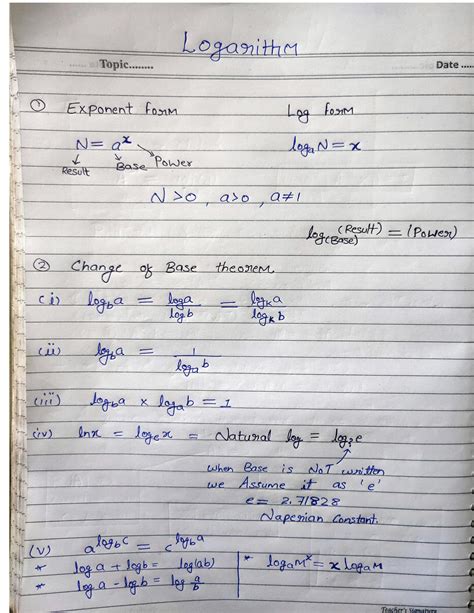 Logarithm
Topic........
Date .....
① Exponent form    Log form
N = aˣ    logₐN = x
Result    Base    Power
N>0, a>0, a≠1
log(Base) (Result) = (Power)
② Change of Base theorem
(i) log_b a = log a / log b = log_k a / log_k b
(ii) log_b a = 1 / log_a b
(iii) log_b a × log_a b = 1
(iv) lnx = logₑx = Natural log = log_? e
when Base is NOT written
we Assume it as 'e'
e = 2.71828
Naperian Constant.
(v) a^(log_b c) = c^(log_b a)
* log a + log b = log(ab)    * logₐMˣ = x logₐM
* log a - log b = log a/b
Teacher's Signature